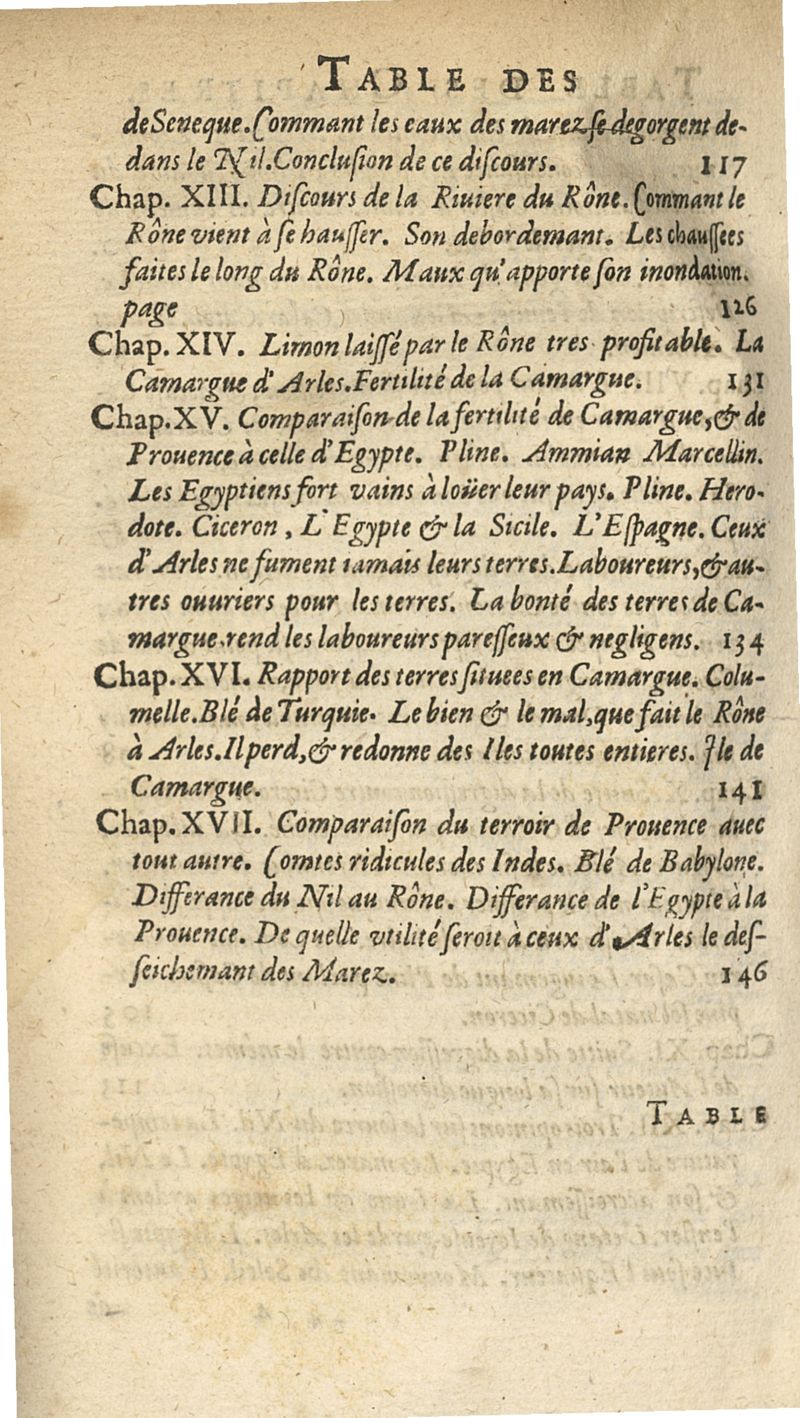 TABLE DES
de Seneque. Commant les eaux des marez se degorgent de-
dans le Nil. Conclusion de ce discours. 117
Chap. XIII. Discours de la Riuiere du Rône. Commant le
Rône vient à se hausser. Son debordemant. Les chaussees
faites le long du Rône. Maux qu'apporte son inondation.
page 126
Chap. XIV. Limon laissé par le Rône tres profitable. La
Camargue d'Arles. Fertilité de la Camargue. 131
Chap. XV. Comparaison de la fertilité de Camargue, & de
Prouence à celle d'Egypte. Pline. Ammian Marcellin.
Les Egyptiens fort vains à loüer leur pays. Pline. Hero-
dote. Ciceron, L'Egypte & la Sicile. L'Espagne. Ceux
d'Arles ne fument iamais leurs terres. Laboureurs, & au-
tres ouuriers pour les terres. La bonté des terres de Ca-
margue, rend les laboureurs paresseux & negligens. 134
Chap. XVI. Rapport des terres situees en Camargue. Colu-
melle. Blé de Turquie. Le bien & le mal, que fait le Rône
à Arles. Il perd, & redonne des Iles toutes entieres. Ile de
Camargue. 141
Chap. XVII. Comparaison du terroir de Prouence auec
tout autre. Comtes ridicules des Indes. Blé de Babylone.
Differance du Nil au Rône. Differance de l'Egypte à la
Prouence. De quelle vtilité seroit à ceux d'Arles le des-
seichemant des Marez. 146
TABLE